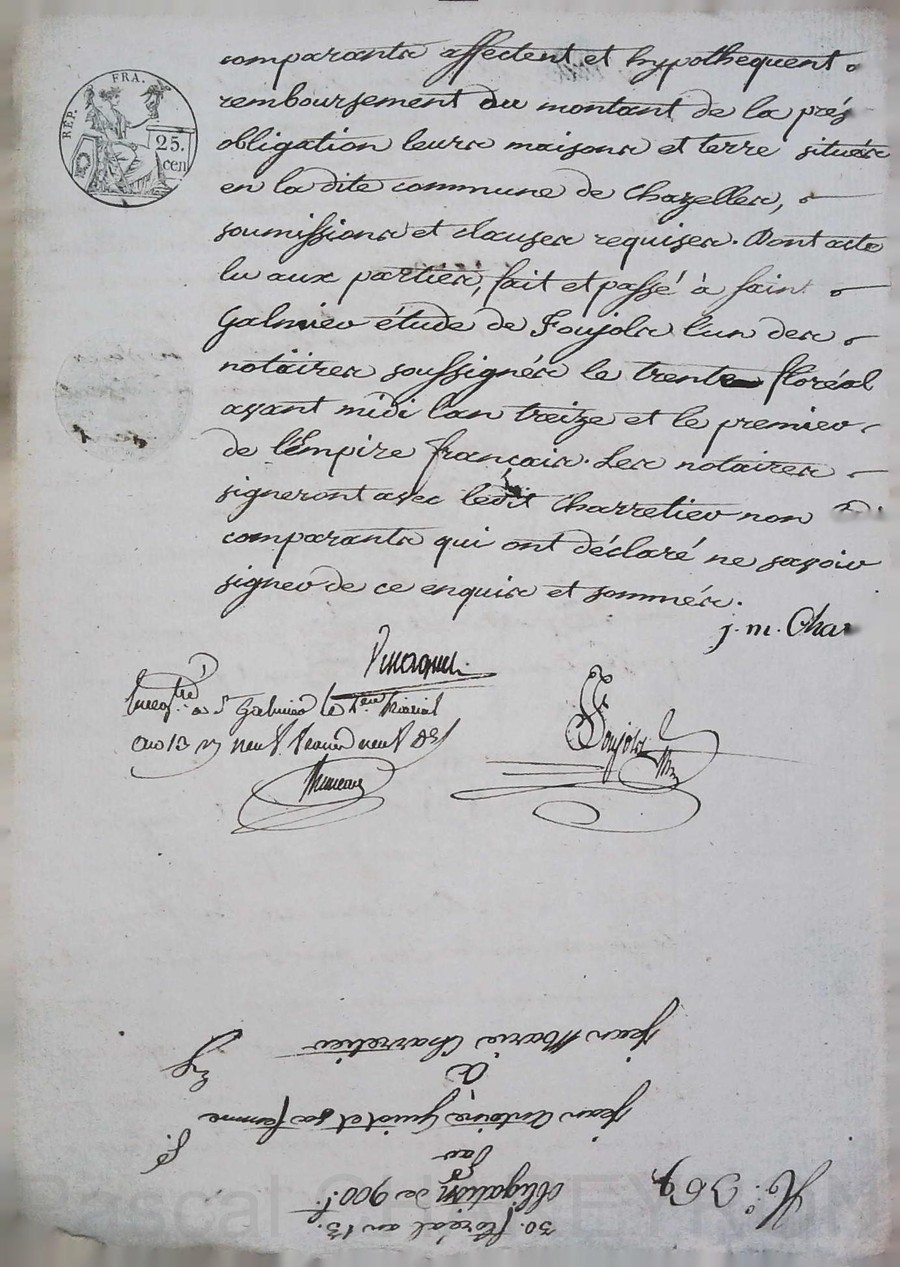 RÉP. FRA.
25.
cen
comparants affectent et hypothequent
remboursement du montant de la prés
obligation leurs maisons et terre situés
en la dite commune de Chazelles,
soumissions et clauses requises. Dont acte
lu aux parties, fait et passé à saint
Galmier étude de Foujols l'un des
notaires soussignés le trente floréal
avant midi l'an treize et le premier
de l'Empire français. Les notaires
signeront avec ledit Charretier non
comparants qui ont déclaré ne savoir
signer de ce enquis et sommés.
j. m. Char
Enreg.tré à St Galmier le 1er prairial
an 13
Foujols
30. floréal an 13.
obligation de 900 f.
par
Jean Antoine Guiot et sa femme
à
Jean Marie Charretier
N.° 369
Pascal CHALEYRON